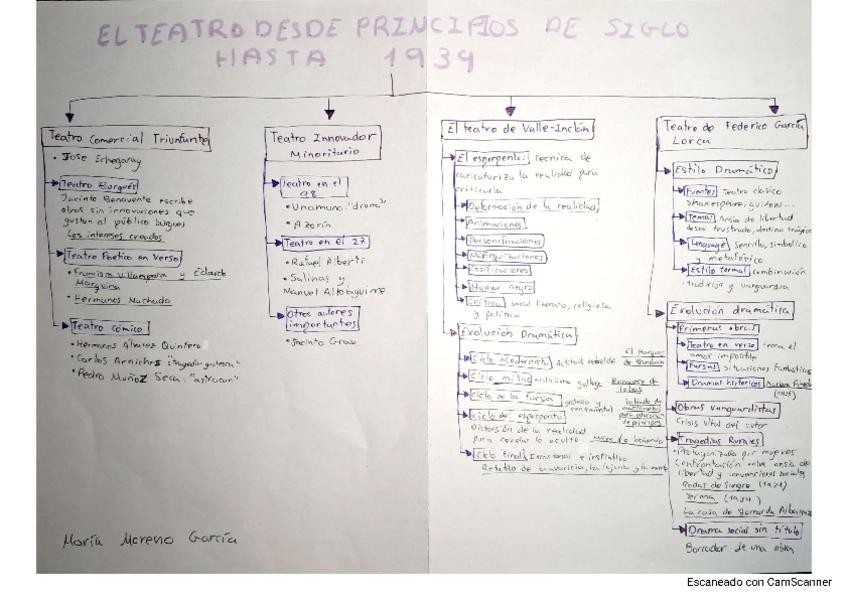 EL TEATRO DESDE PRINCIPIOS DE SIGLO
HASTA 1939
Teatro Comercial Triunfante
• Jose Echegaray
Teatro Burgués
Jacinto Benavente escribe
obras sin innovaciones que
gustan al público burgues
"Los intereses creados"
Teatro Poetico en verso
• Francisco Villaespesa y Eduardo
Marquina
• Hermanos Machado
Teatro cómico
• Hermanos Álvarez Quintero
• Carlos Arniches "tragedia grotesca"
• Pedro Muñoz Seca: "astracan"
Teatro Innovador
Minoritario
Teatro en el
98
• Unamuno "drama"
• Azorín
Teatro en el 27
• Rafael Alberti
• Salinas y
Manuel Altolaguirre
Otros autores
importantes
• Jacinto Grau
El teatro de Valle-Inclán
El esperpento: tecnica de
caricaturiza la realidad para
criticarla
Deformación de la realidad
Animaciones
Personificaciones
Muñequizaciones
Cosificaciones
Humor negro
Critica social literaria, religiosa
y politica
Evolución Dramática
Ciclo Modernista Actitud rebelde El Marques
de Bradomín
Ciclo mitico gallego Romance de
lobos
Ciclo de la farsa grotesco y
sentimental
Tablado de
marionetas
para educación
de principes
Ciclo del esperpento
Distorsión de la realidad
para revelar lo oculto Luces de bohemia
Ciclo final Irracional e instintivo
Retablo de la avaricia, la lujuria y la muerte
Teatro de Federico García
Lorca
Estilo Dramático
Fuentes Teatro clasico
Shakerpeare, guiñol...
Temas Ansia de libertad
deseo frustrado, destino trágico
Lenguage sencillo, simbolico
y metafórico
Estilo formal combinación
tradición y vanguardia
Evolución dramática
Primeras obras
Teatro en verso trata el
amor imposible
Farsas situaciones fantasticas
Dramas históricos Mariana Pineda
(1925)
Obras vanguardistas
Crisis vital del autor
Tragedias Rurales
• Protagonizada por mujeres
Confrontación entre ansia de
libertad y convenciones sociales
Bodas de Sangre
Yerma (1934)
La casa de Bernarda Alba
Drama social sin título
Borrador de una obra
María Moreno García
Escaneado con CamScanner